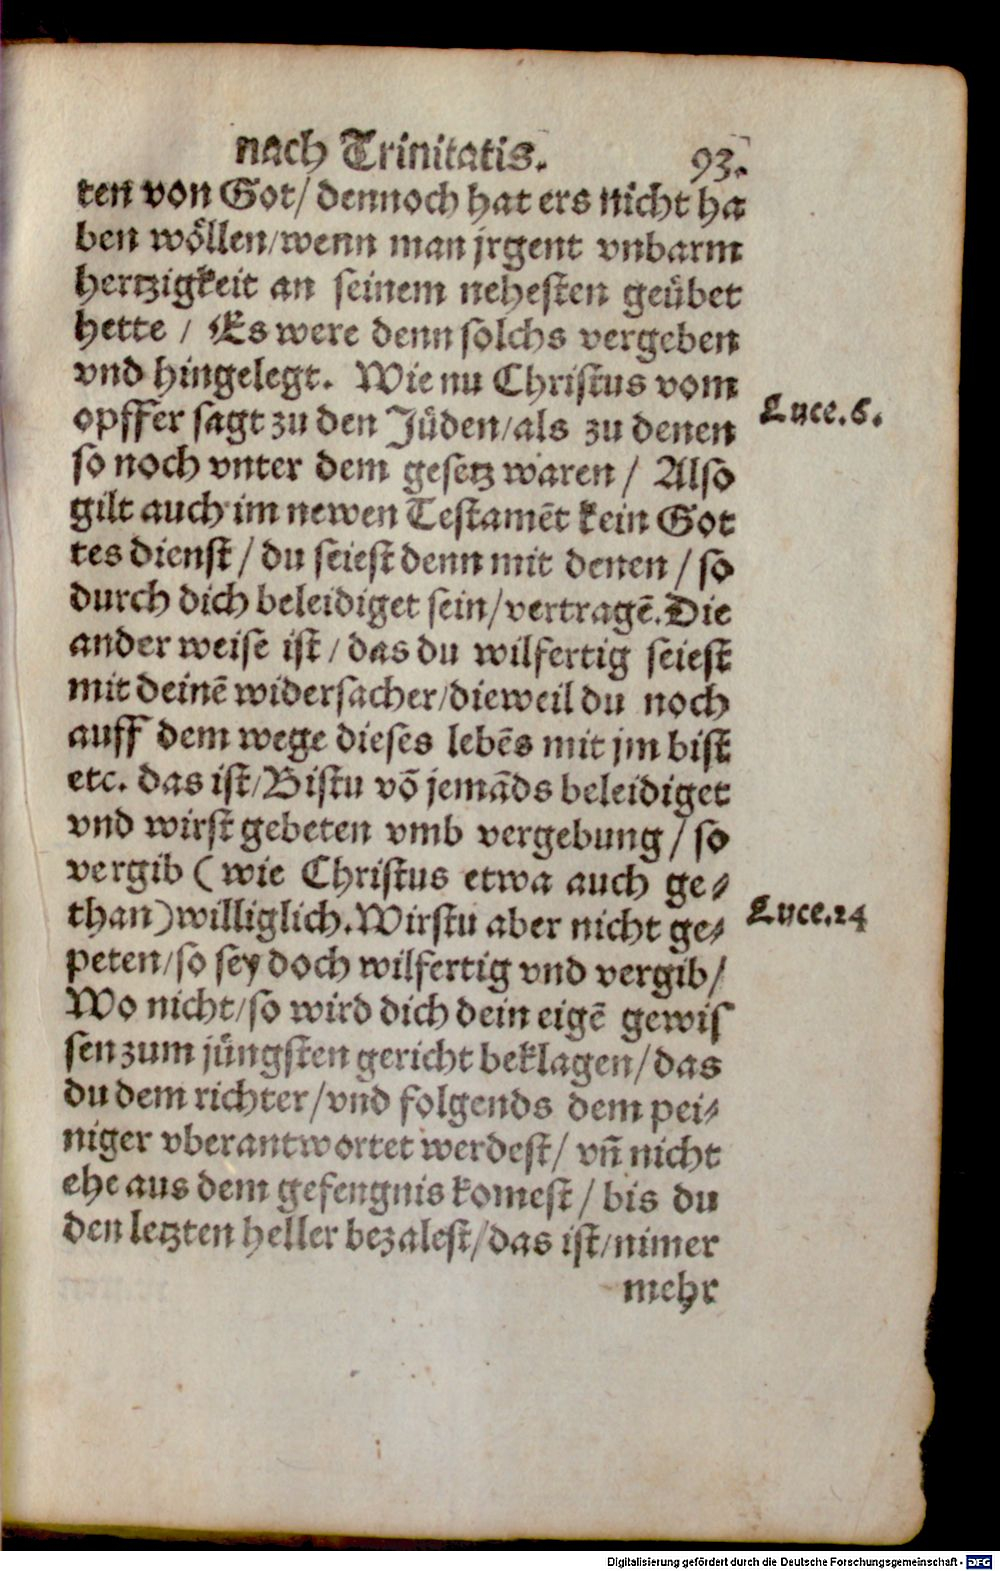 nach Trinitatis. 93.
ten von Got/ dennoch hat ers nicht ha
ben wöllen/wenn man jrgent vnbarm
hertzigkeit an seinem nehesten geübet
hette / Es were denn solchs vergeben
vnd hingelegt. Wie nu Christus vom
opffer sagt zu den Jüden/als zu denen
Luce.6.
so noch vnter dem gesetz waren / Also
gilt auch im newen Testamēt kein Got
tes dienst / du seiest denn mit denen / so
durch dich beleidiget sein/vertragē.Die
ander weise ist / das du wilfertig seiest
mit deinē widersacher/dieweil du noch
auff dem wege dieses lebēs mit jm bist
etc. das ist/Bistu vō jemāds beleidiget
vnd wirst gebeten vmb vergebung / so
vergib ( wie Christus etwa auch ge⸗
than)williglich.Wirstu aber nicht ge⸗
Luce.24
peten/so sey doch wilfertig vnd vergib/
Wo nicht/so wird dich dein eigē gewis
sen zum jüngsten gericht beklagen/das
du dem richter/vnd folgends dem pei⸗
niger vberantwortet werdest/ vn̄ nicht
ehe aus dem gefengnis komest / bis du
den letzten heller bezalest/das ist/nimer
mehr
Digitalisierung gefördert durch die Deutsche Forschungsgemeinschaft - DFG